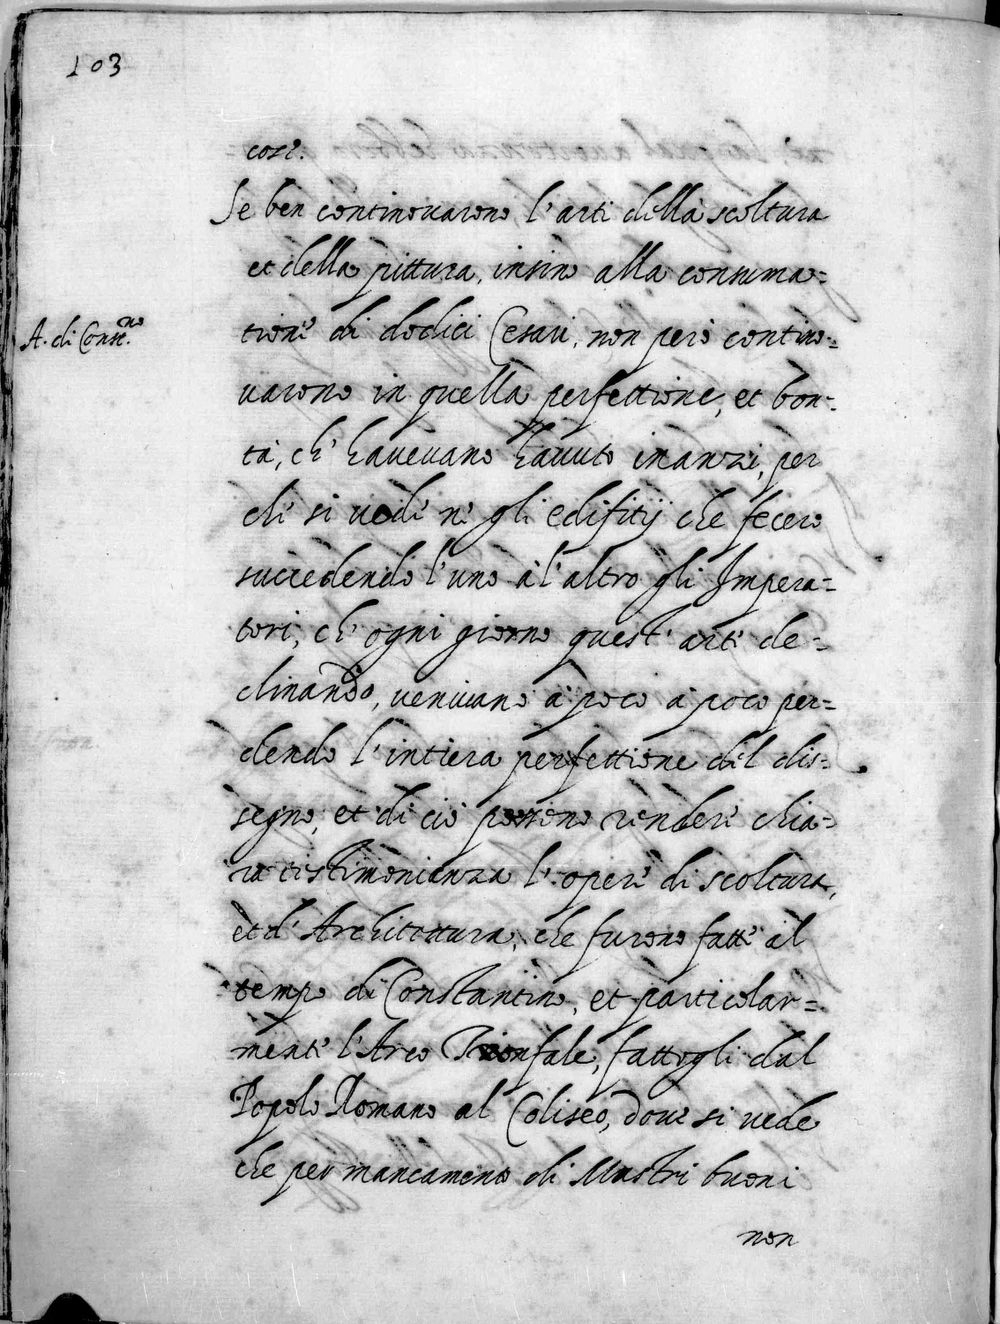 103
cose.
Se ben continovarono l'arti della scoltura
et della pittura, insino alla consuma=
tione di dodici Cesari, non però contino=
A. di Const.no
varono in quella perfettione, et bon=
tà, ch' havevano havuto inanzi, per
che si vede ne gli edifitij che fecero
succedendo l'uno à l'altro gli Impera=
tori, ch' ogni giorno quest' arte de=
clinando, venivano à poco à poco per=
dendo l'intiera perfettione del dis=
segno, et di ciò possono rendere chia=
ra testimonianza l'opere di scoltura,
et d'Architettura, che furono fatte al
tempo di Constantino, et particolar=
mente l'Arco Trionfale, fattogli dal
Popolo Romano al Coliseo, dove si vede
che per mancamento di Mastri buoni
non